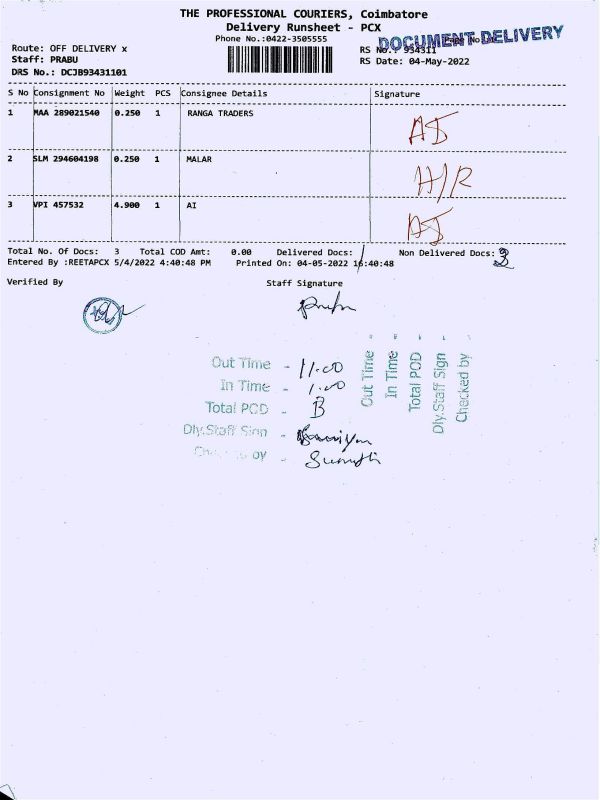 THE PROFESSIONAL COURIERS, Coimbatore
Delivery Runsheet - PCX
Phone No.:0422-3505555
DOCUMENT DELIVERY
Route: OFF DELIVERY x
RS No.: 934311
Staff: PRABU
RS Date: 04-May-2022
DRS No.: DCJB93431101
S No Consignment No Weight PCS Consignee Details Signature
1 MAA 289021540 0.250 1 RANGA TRADERS
2 SLM 294604198 0.250 1 MALAR H/R
3 VPI 457532 4.900 1 AI
Total No. Of Docs: 3 Total COD Amt: 0.00 Delivered Docs: / Non Delivered Docs: 3
Entered By :REETAPCX 5/4/2022 4:40:48 PM Printed On: 04-05-2022 16:40:48
Verified By Staff Signature
Out Time - 11.00
In Time - 1.00
Total POD - B
Dly.Staff Sign -
Checked by - Sumathi
Out Time
In Time
Total POD
Dly.Staff Sign
Checked by